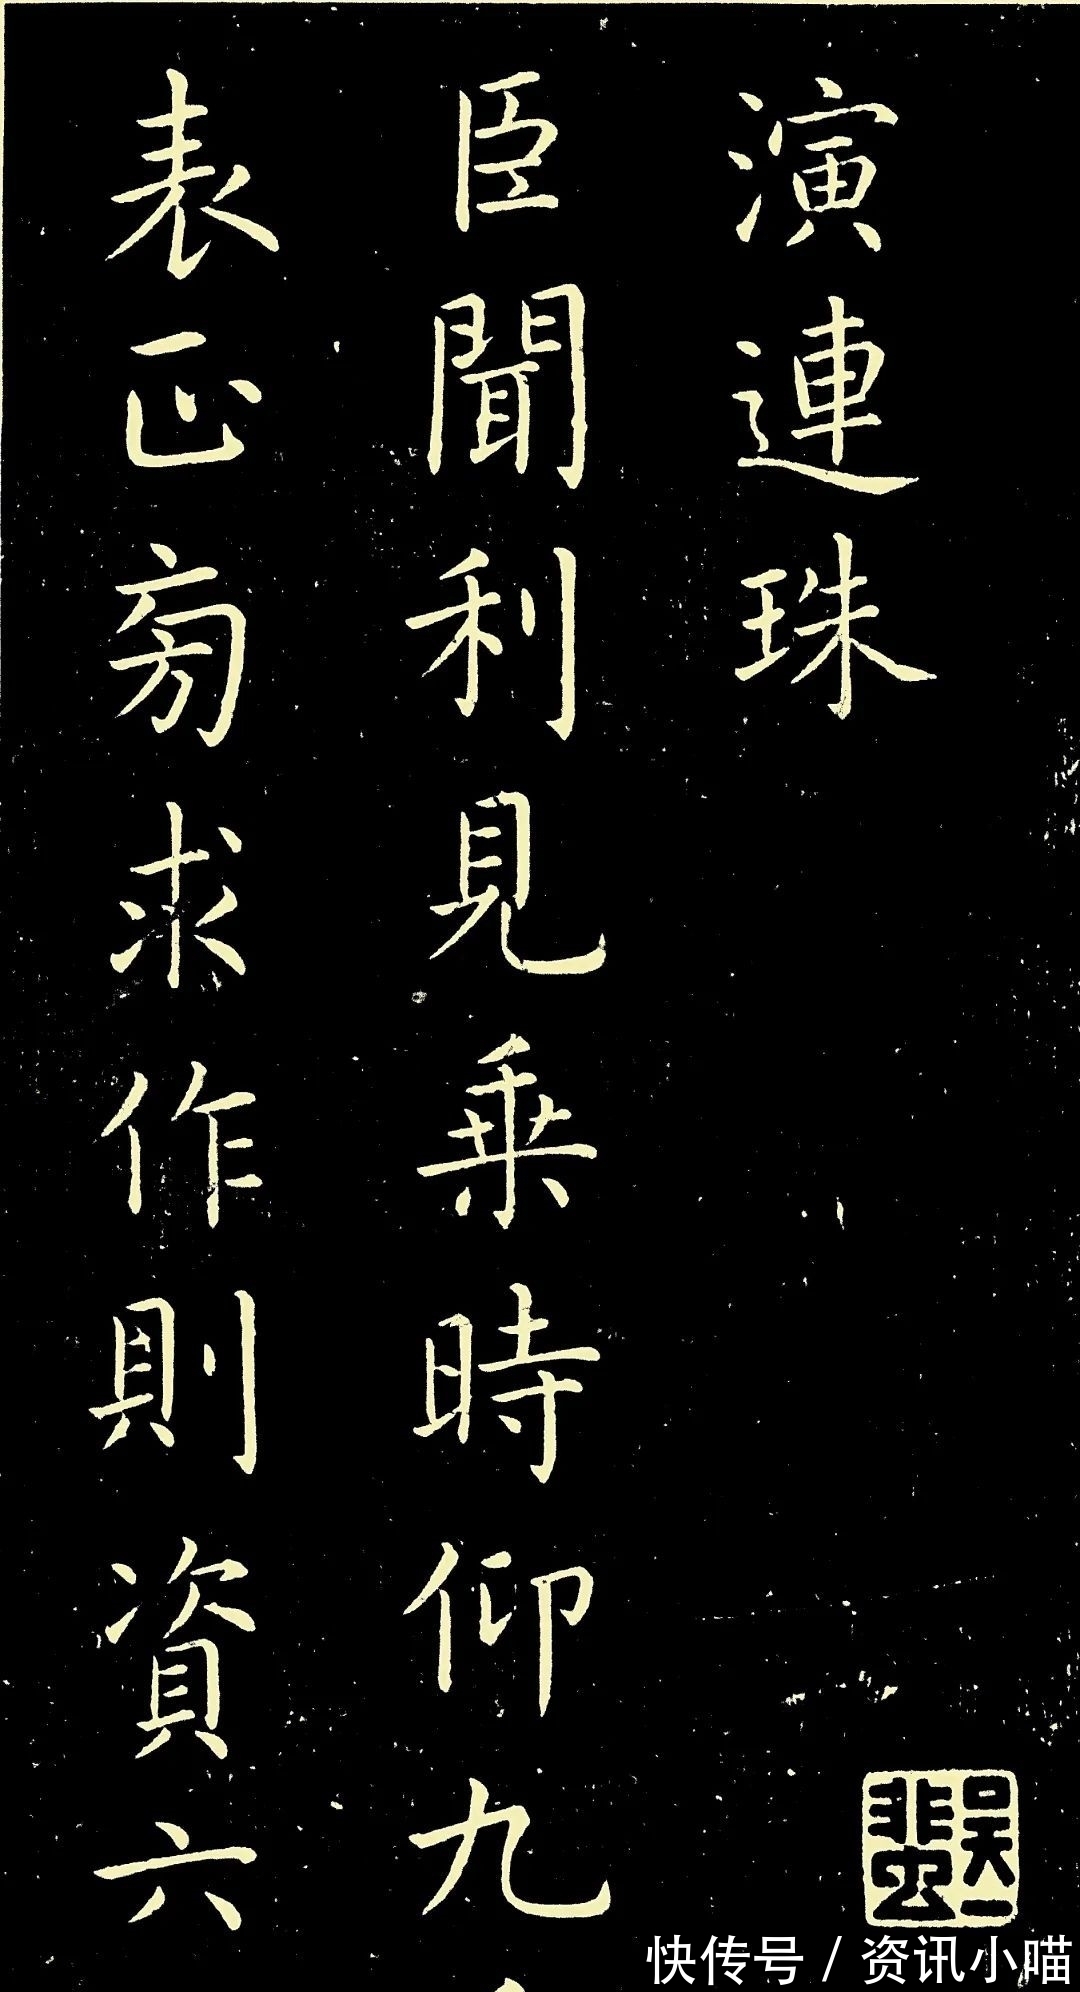 演連珠
臣聞利見乗時仰九
表正匊求作則資六
吴一蜚
快传号 / 资讯小喵